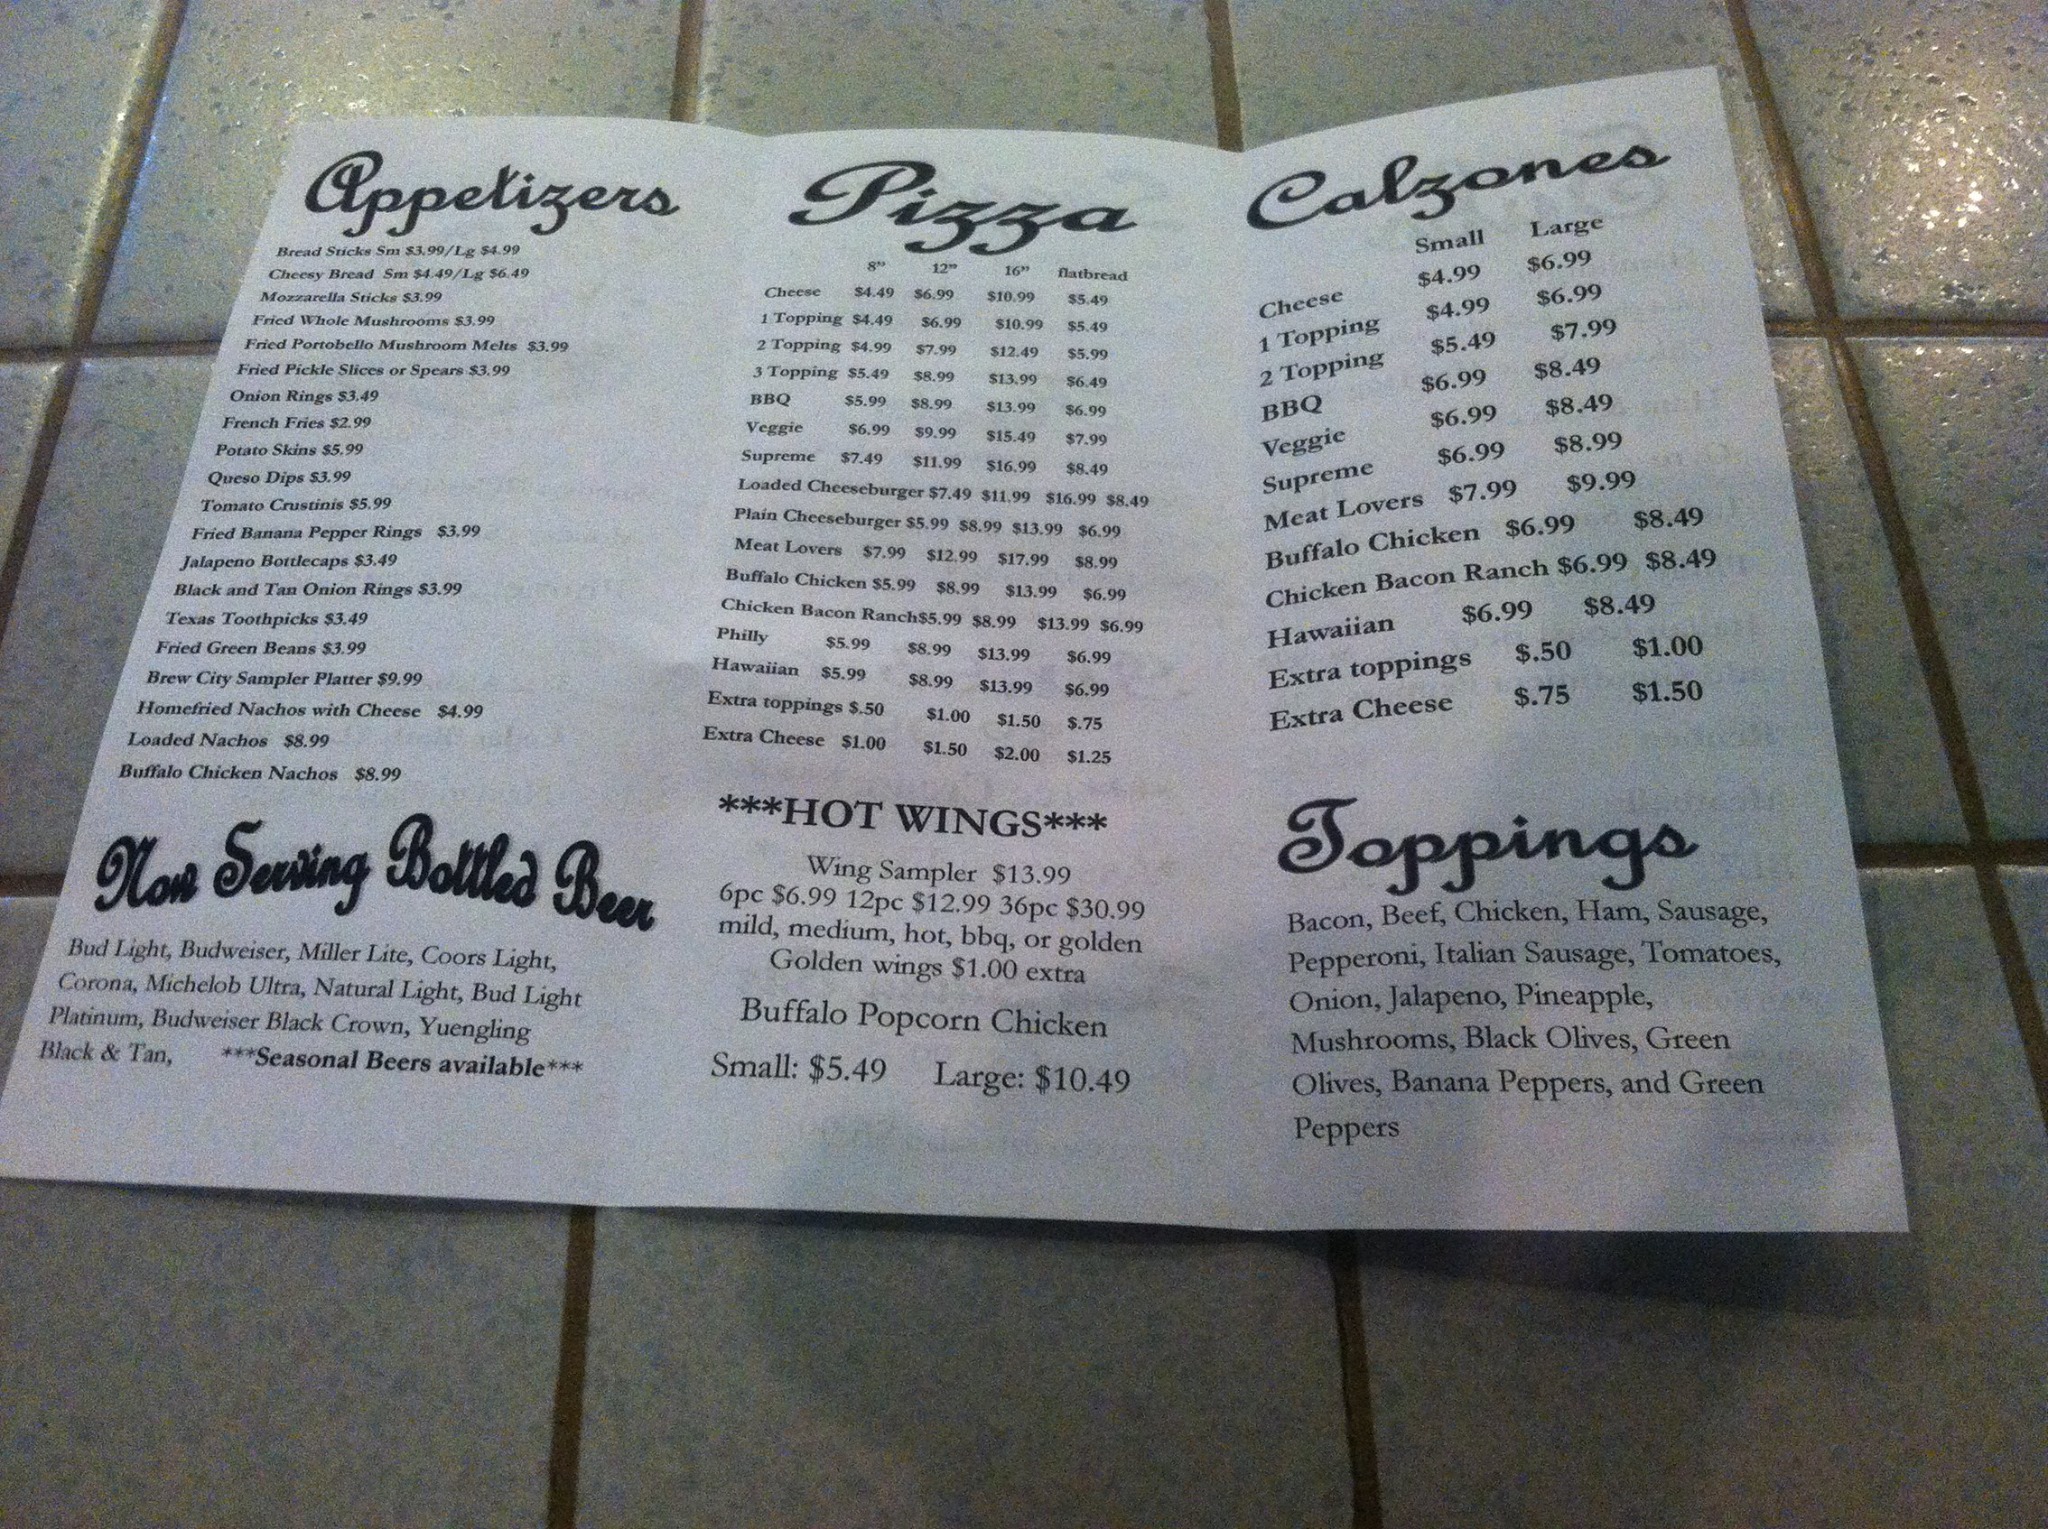 Appetizers
Bread Sticks Sm $3.99/Lg $4.99
Cheesy Bread Sm $4.49/Lg $6.49
Mozzarella Sticks $3.99
Fried Whole Mushrooms $3.99
Fried Portobello Mushroom Melts $3.99
Fried Pickle Slices or Spears $3.99
Onion Rings $3.49
French Fries $2.99
Potato Skins $5.99
Queso Dips $3.99
Tomato Crustinis $5.99
Fried Banana Pepper Rings $3.99
Jalapeno Bottlecaps $3.49
Black and Tan Onion Rings $3.99
Texas Toothpicks $3.49
Fried Green Beans $3.99
Brew City Sampler Platter $9.99
Homefried Nachos with Cheese $4.99
Loaded Nachos $8.99
Buffalo Chicken Nachos $8.99
Now Serving Bottled Beer
Bud Light, Budweiser, Miller Lite, Coors Light,
Corona, Michelob Ultra, Natural Light, Bud Light
Platinum, Budweiser Black Crown, Yuengling
Black & Tan, ***Seasonal Beers available***
Pizza
8" 12" 16" flatbread
Cheese $4.49 $6.99 $10.99 $5.49
1 Topping $4.49 $6.99 $10.99 $5.49
2 Topping $4.99 $7.99 $12.49 $5.99
3 Topping $5.49 $8.99 $13.99 $6.49
BBQ $5.99 $8.99 $13.99 $6.99
Veggie $6.99 $9.99 $15.49 $7.99
Supreme $7.49 $11.99 $16.99 $8.49
Loaded Cheeseburger $7.49 $11.99 $16.99 $8.49
Plain Cheeseburger $5.99 $8.99 $13.99 $6.99
Meat Lovers $7.99 $12.99 $17.99 $8.99
Buffalo Chicken $5.99 $8.99 $13.99 $6.99
Chicken Bacon Ranch $5.99 $8.99 $13.99 $6.99
Philly $5.99 $8.99 $13.99 $6.99
Hawaiian $5.99 $8.99 $13.99 $6.99
Extra toppings $.50 $1.00 $1.50 $.75
Extra Cheese $1.00 $1.50 $2.00 $1.25
***HOT WINGS***
Wing Sampler $13.99
6pc $6.99 12pc $12.99 36pc $30.99
mild, medium, hot, bbq, or golden
Golden wings $1.00 extra
Buffalo Popcorn Chicken
Small: $5.49 Large: $10.49
Calzones
Small Large
Cheese $4.99 $6.99
1 Topping $4.99 $6.99
2 Topping $5.49 $7.99
BBQ $6.99 $8.49
Veggie $6.99 $8.49
Supreme $6.99 $8.99
Meat Lovers $7.99 $9.99
Buffalo Chicken $6.99 $8.49
Chicken Bacon Ranch $6.99 $8.49
Hawaiian $6.99 $8.49
Extra toppings $.50 $1.00
Extra Cheese $.75 $1.50
Toppings
Bacon, Beef, Chicken, Ham, Sausage,
Pepperoni, Italian Sausage, Tomatoes,
Onion, Jalapeno, Pineapple,
Mushrooms, Black Olives, Green
Olives, Banana Peppers, and Green
Peppers